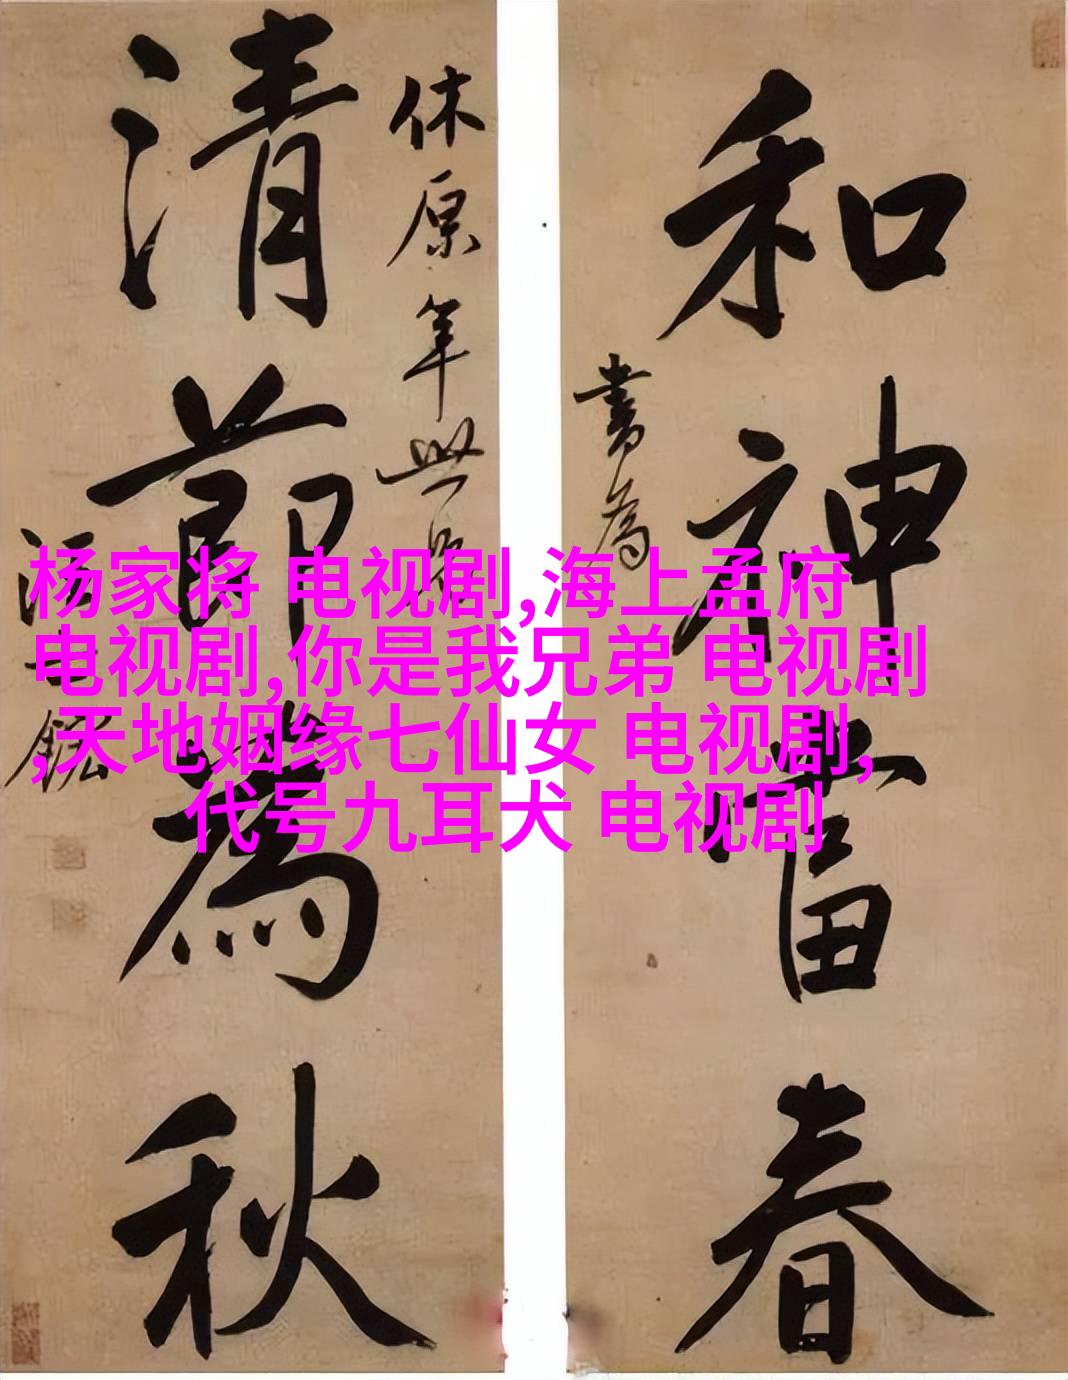 和神當春
書為
休原年世兄
清節為秋
汪士鋐
杨家将 电视剧,海上孟府
电视剧,你是我兄弟 电视剧
,天地姻缘七仙女 电视剧,
代号九耳犬 电视剧